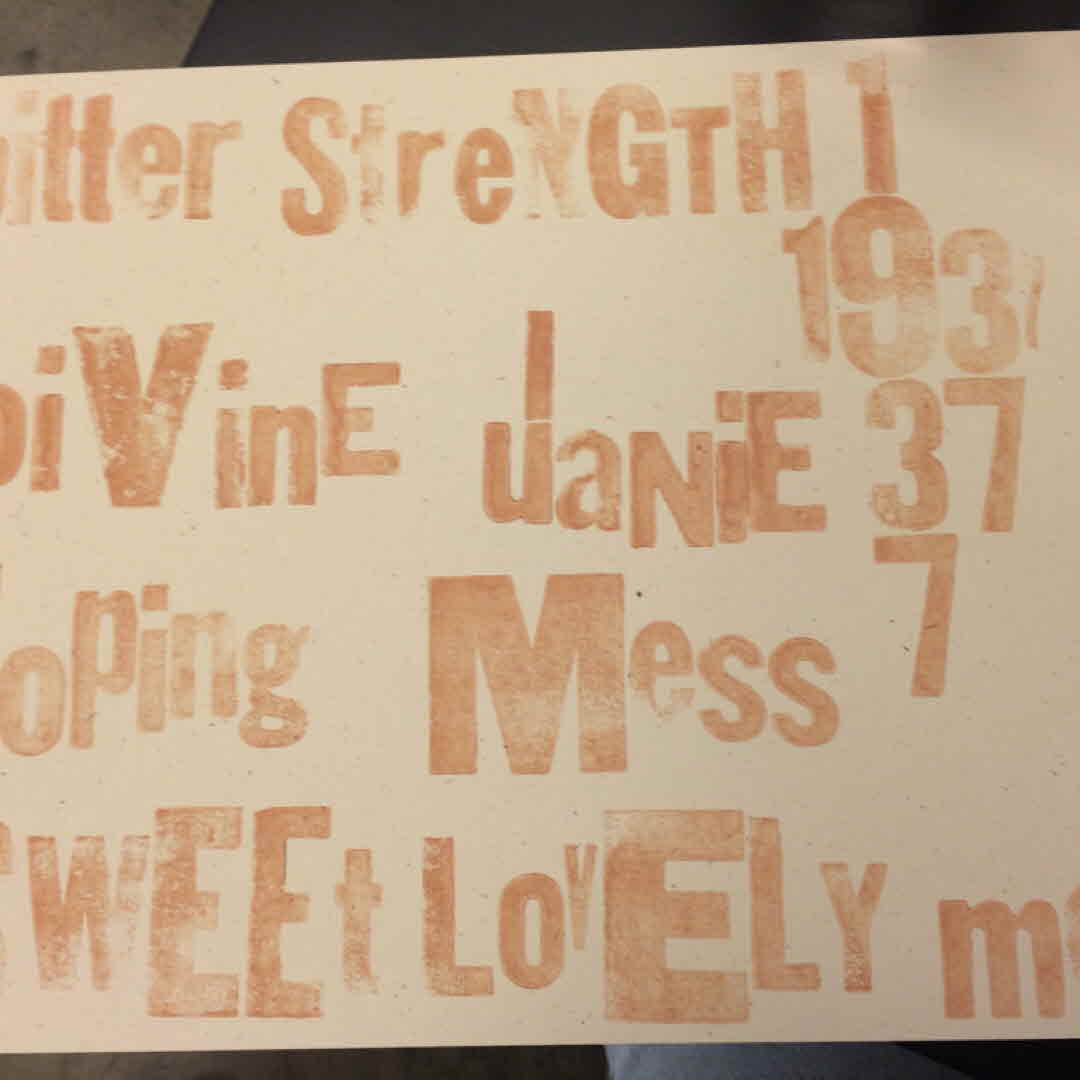 bitter StreNGTH 1
193
DiVinE JaNiE 37
oping Mess 7
SWEEt LoVELY